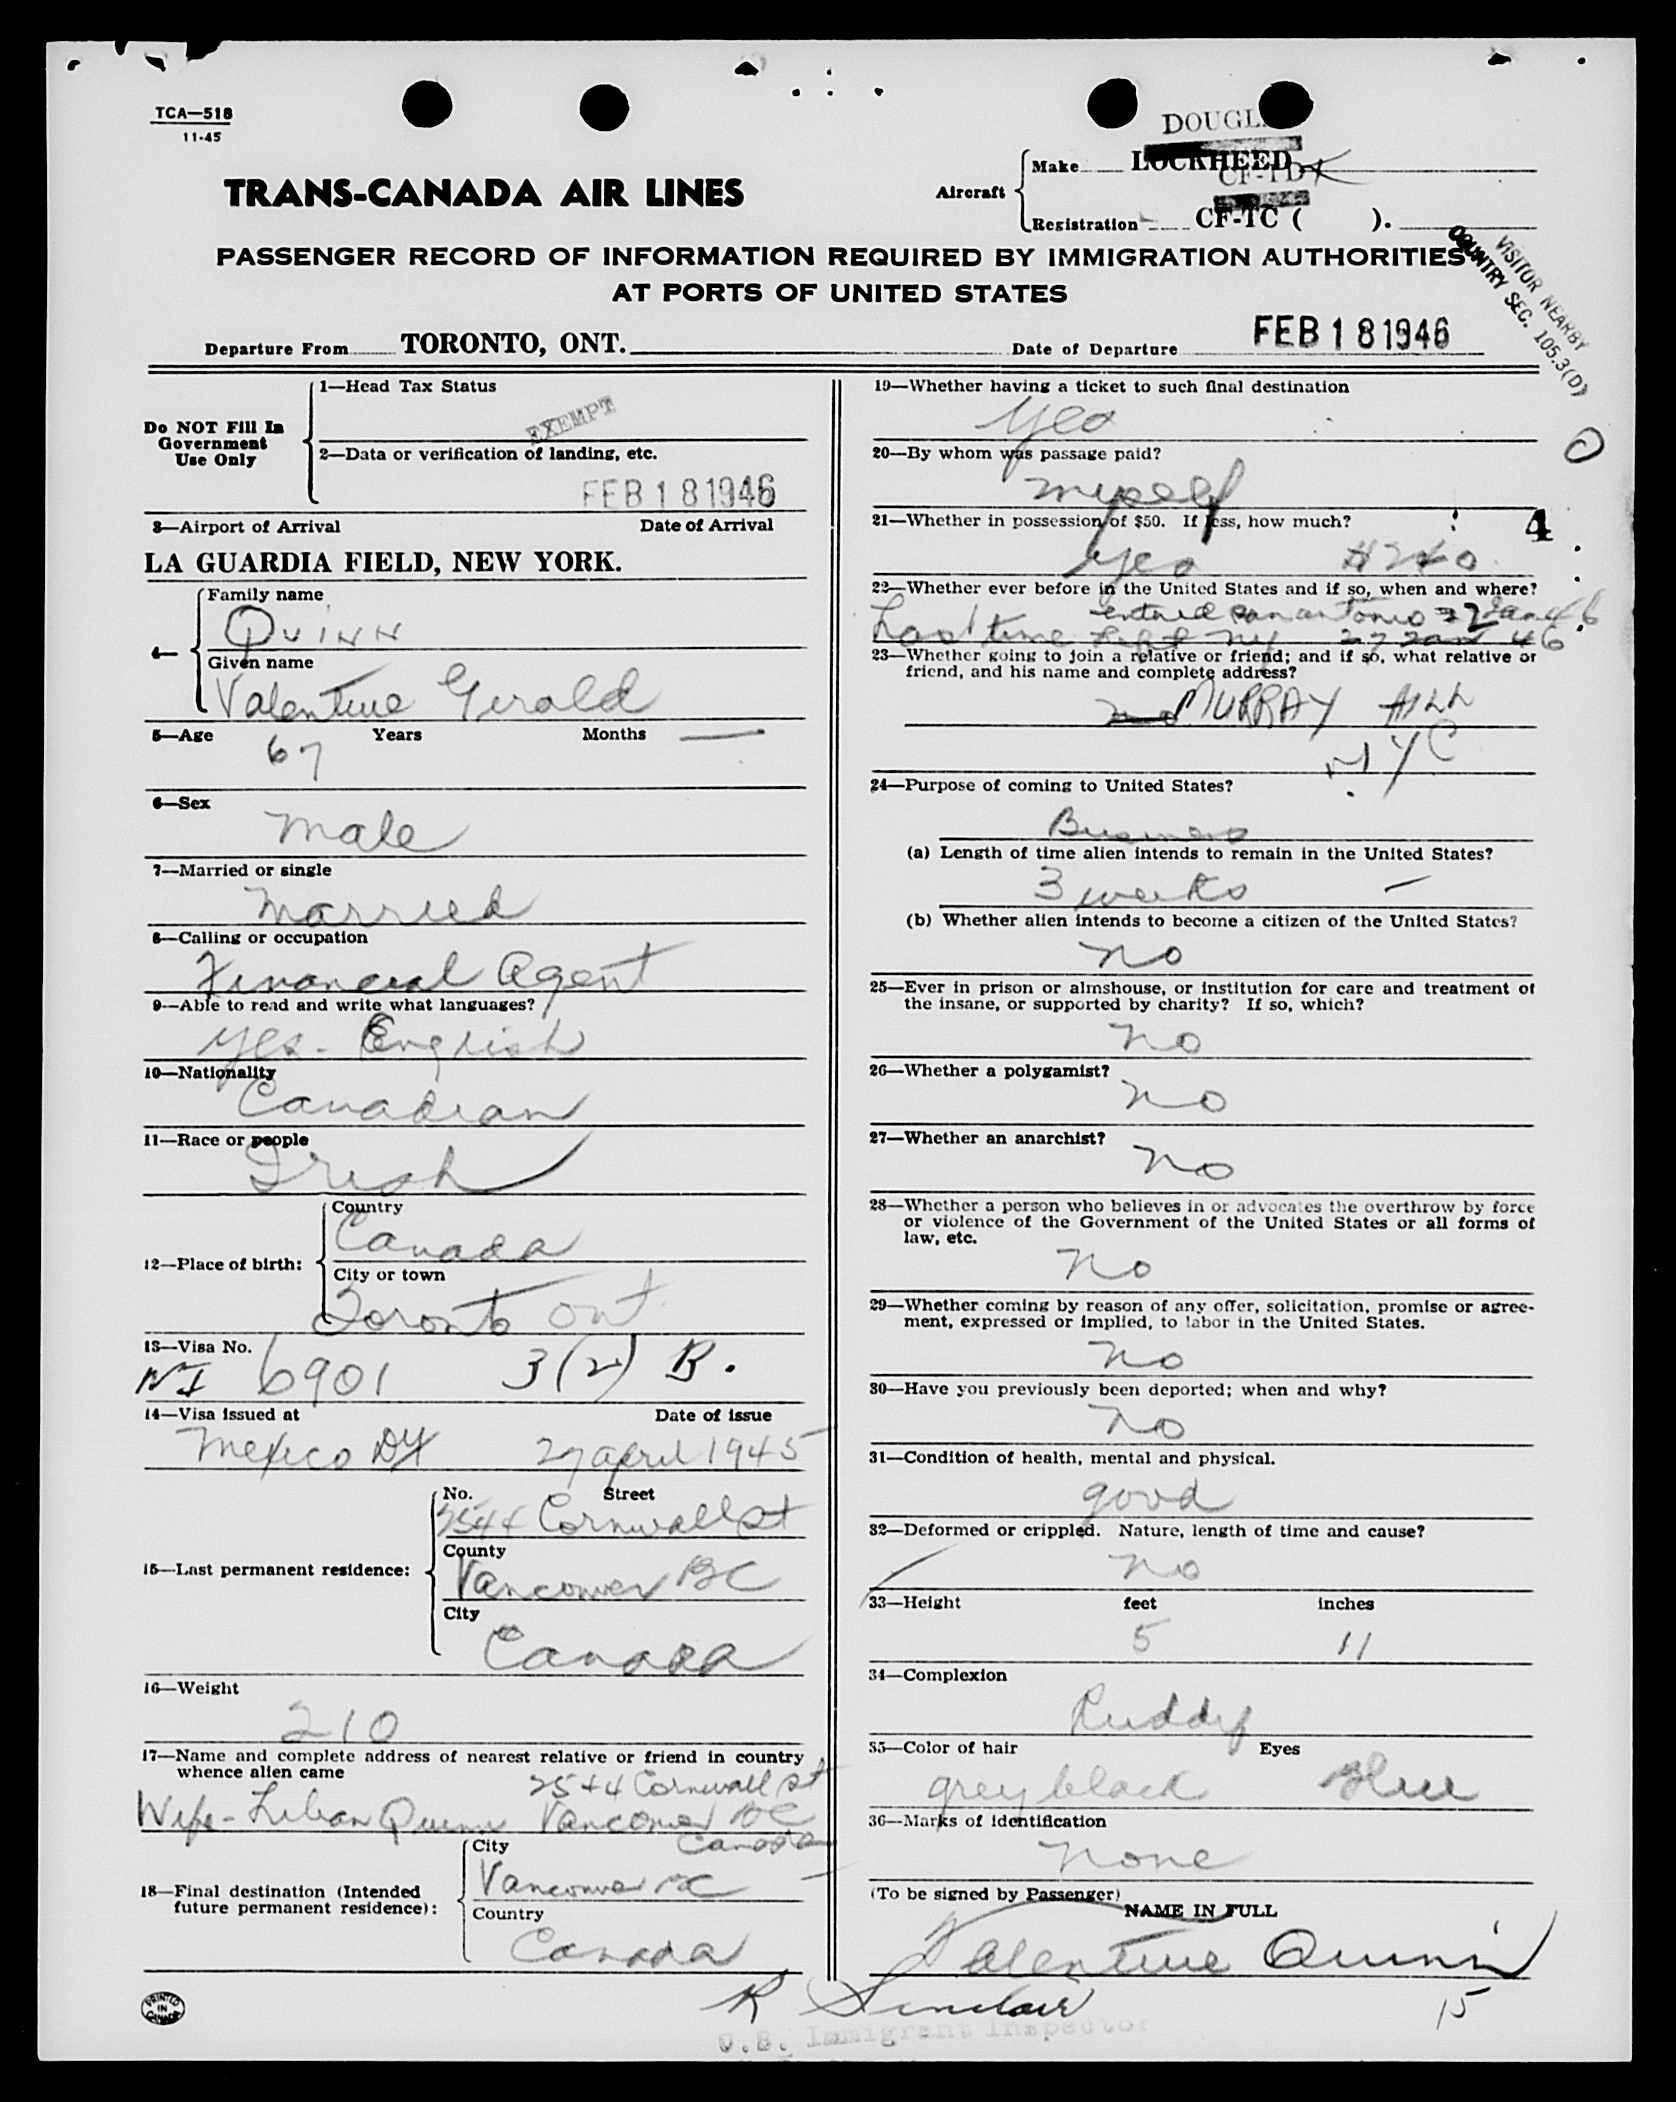 TCA—518
11-45
DOUGL
Make LOCKHEED
CF-TD
Aircraft
Registration CF-TC ( ).
TRANS-CANADA AIR LINES
PASSENGER RECORD OF INFORMATION REQUIRED BY IMMIGRATION AUTHORITIES
AT PORTS OF UNITED STATES
VISITOR NEARBY
COUNTRY SEC. 105.3(D)
Departure From TORONTO, ONT. Date of Departure FEB 18 1946
Do NOT Fill In
Government
Use Only
1—Head Tax Status
EXEMPT
2—Data or verification of landing, etc.
FEB 18 1946
3—Airport of Arrival Date of Arrival
LA GUARDIA FIELD, NEW YORK.
4—
Family name
Quinn
Given name
Valentine Gerald
5—Age 67 Years Months —
6—Sex
Male
7—Married or single
Married
8—Calling or occupation
Financial Agent
9—Able to read and write what languages?
Yes - English
10—Nationality
Canadian
11—Race or people
Irish
12—Place of birth:
Country
Canada
City or town
Toronto Ont
13—Visa No.
NI 6901 3(2) B.
14—Visa issued at Date of issue
Mexico DF 27 April 1945
15—Last permanent residence:
No. Street
2544 Cornwall St
County
Vancouver BC
City
Canada
16—Weight
210
17—Name and complete address of nearest relative or friend in country
whence alien came
2544 Cornwall St
Wife - Lilian Quinn Vancouver BC
Canada
18—Final destination (Intended
future permanent residence):
City
Vancouver BC
Country
Canada
PRINTED
IN
CANADA
19—Whether having a ticket to such final destination
Yes
20—By whom was passage paid?
myself
21—Whether in possession of $50. If less, how much?
4
Yes $240
22—Whether ever before in the United States and if so, when and where?
entered San Antonio 22 Jan 46
Last time left NY 27 Jan 46
23—Whether going to join a relative or friend; and if so, what relative or
friend, and his name and complete address?
no MURRAY HILL
NYC
24—Purpose of coming to United States?
Business
(a) Length of time alien intends to remain in the United States?
3 weeks —
(b) Whether alien intends to become a citizen of the United States?
no
25—Ever in prison or almshouse, or institution for care and treatment of
the insane, or supported by charity? If so, which?
no
26—Whether a polygamist?
no
27—Whether an anarchist?
no
28—Whether a person who believes in or advocates the overthrow by force
or violence of the Government of the United States or all forms of
law, etc.
no
29—Whether coming by reason of any offer, solicitation, promise or agree-
ment, expressed or implied, to labor in the United States.
no
30—Have you previously been deported; when and why?
no
31—Condition of health, mental and physical.
good
32—Deformed or crippled. Nature, length of time and cause?
no
33—Height feet inches
5 11
34—Complexion
Ruddy
35—Color of hair Eyes
grey black Blue
36—Marks of identification
none
(To be signed by Passenger)
NAME IN FULL
Valentine Quinn
R Sinclair 15
U.S. Immigrant Inspector